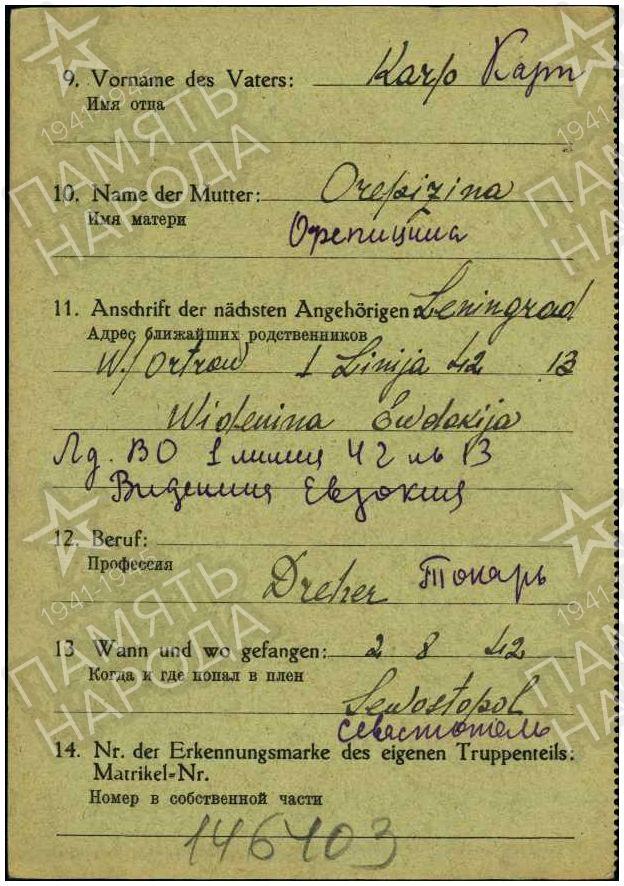 9. Vorname des Vaters: Karp Карп
Имя отца
10. Name der Mutter: Orepizina
Имя матери
Орепицина
11. Anschrift der nächsten Angehörigen: Leningrad
Адрес ближайших родственников
W/Ortrow 1 Linija 42 13
Widenina Ewdokija
Лд. ВО 1 линия 42 13
Виденина Евдокия
12. Beruf:
Профессия
Dreher Токарь
13 Wann und wo gefangen: 2 8 42
Когда и где попал в плен
Sewostopol
Севастополь
14. Nr. der Erkennungsmarke des eigenen Truppenteils:
Matrikel-Nr.
Номер в собственной части
146403
1941-1945
ПАМЯТЬ
НАРОДА
1941-1945
ПАМЯТЬ
НАРОДА
1941-1945
ПАМЯТЬ
НАРОДА
1941-1945
ПАМЯТЬ
НАРОДА